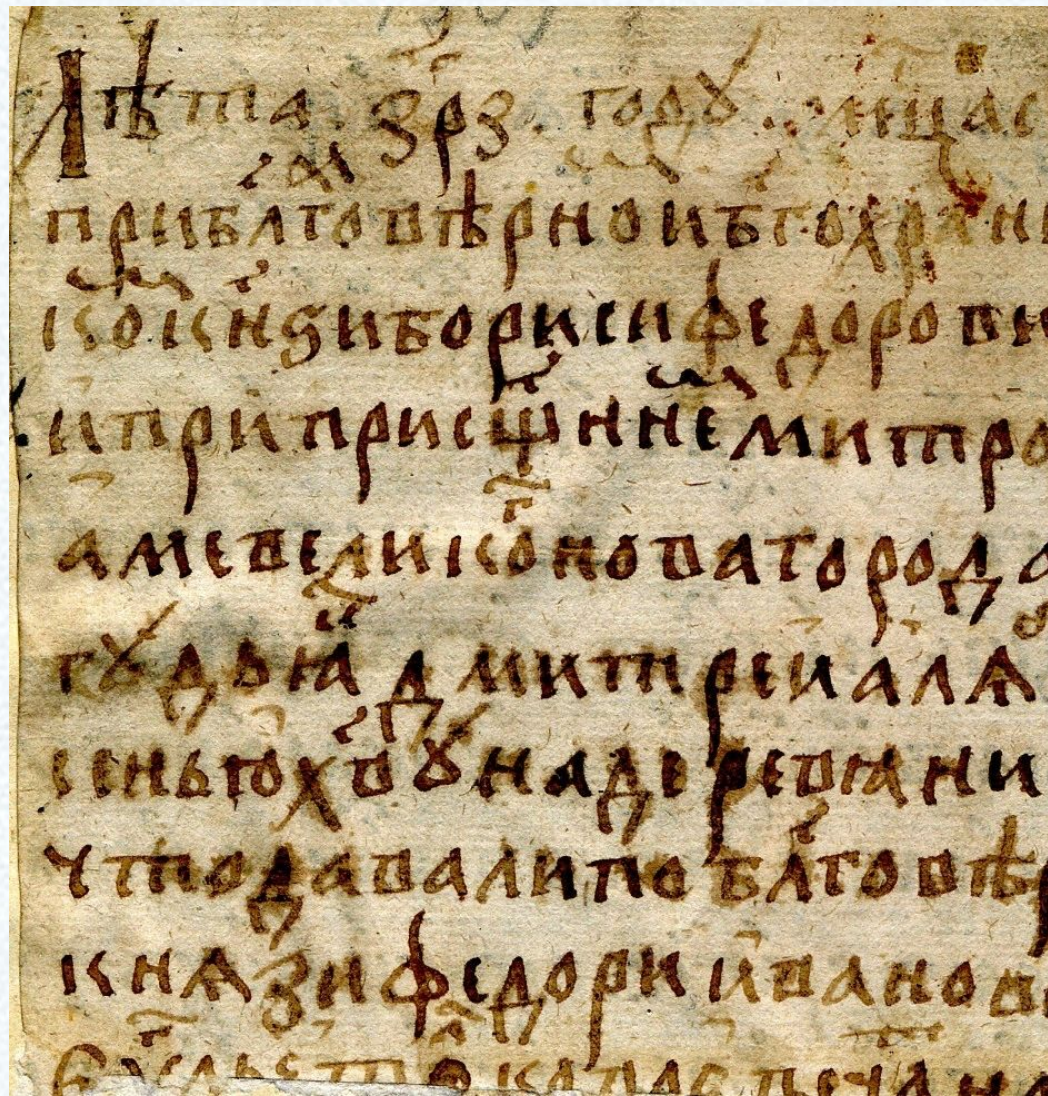 Лѣта зрз году мц҃а с
при бл҃говѣрно и б҃гохрани
ко кн҃ѕи борисѣи федорови
и при присщ҃нне митро
а ме велико новагорода
гу дья дмитреи аля
сеньюхву на деревяни
что давали по бл҃говѣр
князи федори иванов